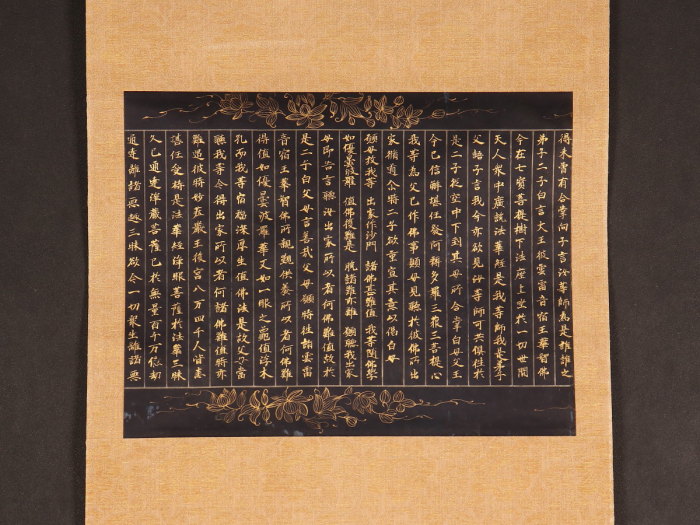 得未曾有合掌向子言汝等師為是誰誰之
弟子二子白言大王彼雲雷音宿王華智佛
今在七寶菩提樹下法座上坐於一切世間
天人眾中廣說法華經是我等師我是弟子
父語子言我今亦欲見汝等師可共俱往於
是二子從空中下到其母所合掌白母父王
今已信解堪任發阿耨多羅三藐三菩提心
我等為父已作佛事願母見聽於彼佛所出
家脩道尒時二子欲重宣其意以偈白母
願母放我等 出家作沙門 諸佛甚難值 我等隨佛學
如優曇波羅 值佛復難是 脫諸難亦難 願聽我出家
母即告言聽汝出家所以者何佛難值故於
是二子白父母言善哉父母願時往詣雲雷
音宿王華智佛所親覲供養所以者何佛難
得值如優曇波羅華又如一眼之龜值浮木
孔而我等宿福深厚生值佛法是故父母當
聽我等令得出家所以者何諸佛難值時亦
難遇彼時妙莊嚴王後宮八万四千人皆悉
堪任受持是法華經淨眼菩薩於法華三昧
久已通達淨藏菩薩已於無量百千万億劫
通達離諸惡趣三昧欲令一切眾生離諸惡